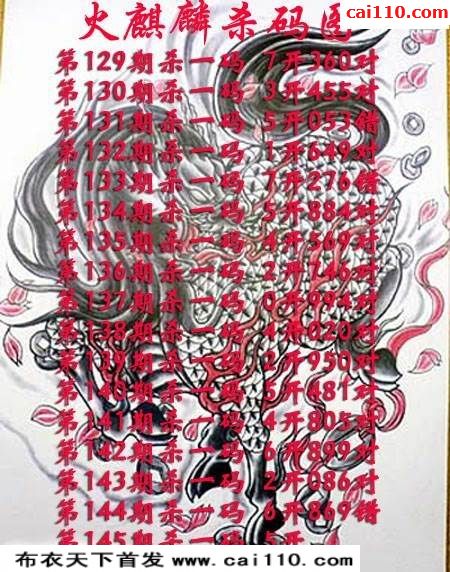 cai110.com
火麒麟杀码图
第129期杀一码 7开360对
第130期杀一码 3开455对
第131期杀一码 5开053错
第132期杀一码 1开649对
第133期杀一码 7开276错
第134期杀一码 5开884对
第135期杀一码 4开569对
第136期杀一码 2开746对
第137期杀一码 0开994对
第138期杀一码 4开020对
第139期杀一码 2开950对
第140期杀一码 5开481对
第141期杀一码 4开805对
第142期杀一码 6开899对
第143期杀一码 2开086对
第144期杀一码 6开869错
第145期杀一码 5开
布衣天下首发 www.cai110.com